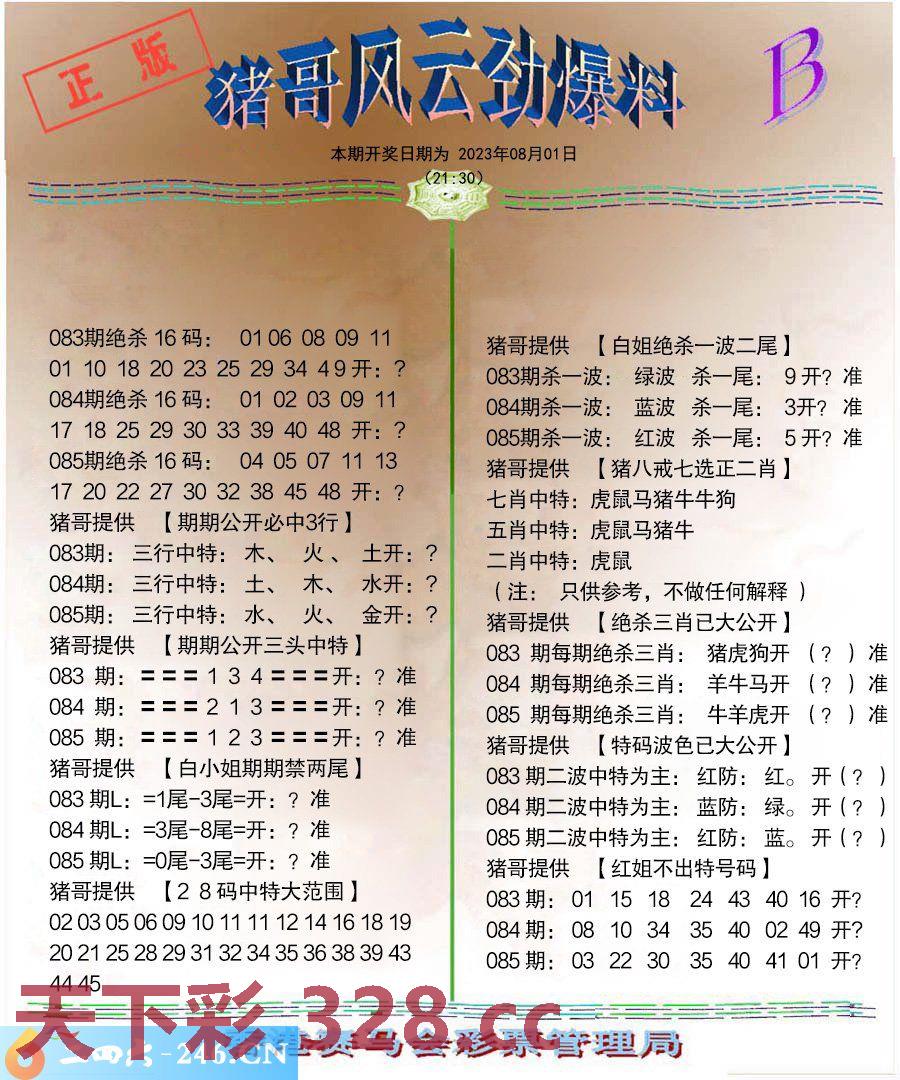 正版
猪哥风云劲爆料
B
本期开奖日期为 2023年08月01日
(21:30)
083期绝杀 16 码： 01 06 08 09 11
01 10 18 20 23 25 29 34 49 开：？
084期绝杀 16 码： 01 02 03 09 11
17 18 25 29 30 33 39 40 48 开：？
085期绝杀 16 码： 04 05 07 11 13
17 20 22 27 30 32 38 45 48 开：？
猪哥提供 【期期公开必中3行】
083期： 三行中特： 木、 火 、 土开：？
084期： 三行中特： 土、 木、 水开：？
085期： 三行中特： 水、 火、 金开：？
猪哥提供 【期期公开三头中特】
083 期：＝＝＝ 1 3 4 ＝＝＝开：？准
084 期：＝＝＝ 2 1 3 ＝＝＝开：？准
085 期：＝＝＝ 1 2 3 ＝＝＝开：？准
猪哥提供 【白小姐期期禁两尾】
083 期L：=1尾-3尾=开：？准
084 期L：=3尾-8尾=开：？准
085 期L：=0尾-3尾=开：？准
猪哥提供 【２８码中特大范围】
02 03 05 06 09 10 11 11 12 14 16 18 19
20 21 25 28 29 31 32 34 35 36 38 39 43
44 45
猪哥提供 【白姐绝杀一波二尾】
083期杀一波： 绿波 杀一尾： 9 开？准
084期杀一波： 蓝波 杀一尾： 3开？准
085期杀一波： 红波 杀一尾： 5 开？准
猪哥提供 【猪八戒七选正二肖】
七肖中特：虎鼠马猪牛牛狗
五肖中特：虎鼠马猪牛
二肖中特：虎鼠
（注： 只供参考，不做任何解释 ）
猪哥提供 【绝杀三肖已大公开】
083 期每期绝杀三肖： 猪虎狗开 （？）准
084 期每期绝杀三肖： 羊牛马开 （？）准
085 期每期绝杀三肖： 牛羊虎开 （？）准
猪哥提供 【特码波色已大公开】
083 期二波中特为主：红防：红。开（？）
084 期二波中特为主：蓝防：绿。开（？）
085 期二波中特为主：红防：蓝。开（？）
猪哥提供 【红姐不出特号码】
083 期： 01 15 18 24 43 40 16 开?
084 期： 08 10 34 35 40 02 49 开?
085 期： 03 22 30 35 40 41 01 开?
天下彩 328.cc
-246.CN
赛马会彩票管理局